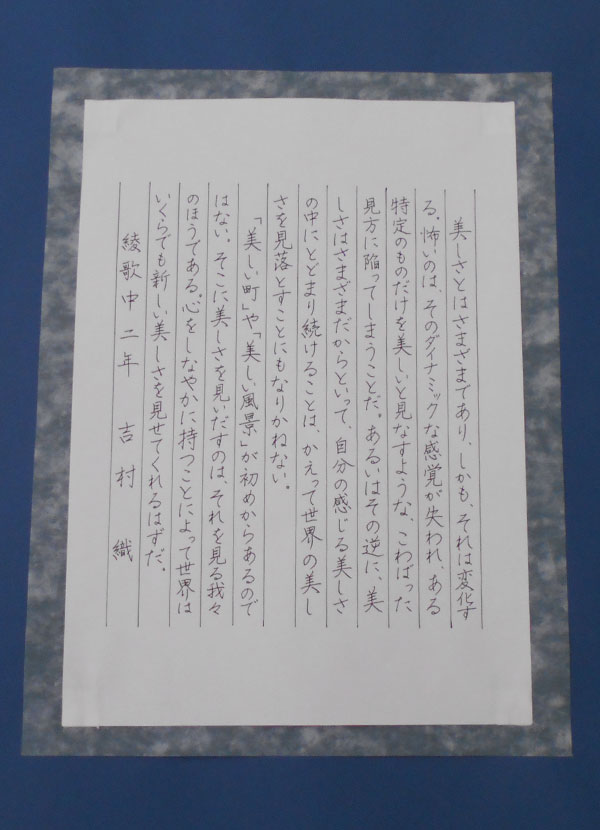 美しさとはさまざまであり、しかも、それは変化す
る。怖いのは、そのダイナミックな感覚が失われ、ある
特定のものだけを美しいと見なすような、こわばった
見方に陥ってしまうことだ。あるいはその逆に、美
しさはさまざまだからといって、自分の感じる美しさ
の中にとどまり続けることは、かえって世界の美し
さを見落とすことにもなりかねない。
「美しい町」や「美しい風景」が初めからあるので
はない。そこに美しさを見いだすのは、それを見る我々
のほうである。心をしなやかに持つことによって世界は
いくらでも新しい美しさを見せてくれるはずだ。
綾歌中二年 吉村 織